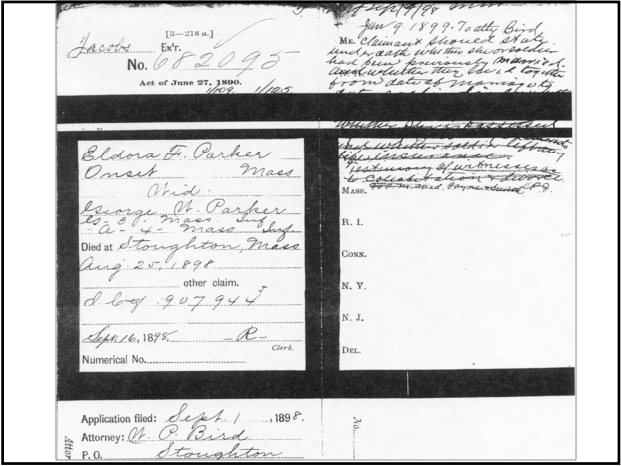 [3—218 a.]
Jacobs Ex'r.
No. 682095
Act of June 27, 1890.
1/109. 1/125
Eldora F. Parker
Onset Mass
Wid.
George W. Parker
G - 3 - Mass Inf
A - 4 - Mass Inf
Died at Stoughton, Mass
Aug. 25, 1898
other claim.
907944
Sept. 16, 1898. —R—
Clerk.
Numerical No.
Application filed: Sept. 1, 1898.
Attorney: W. P. Bird
P. O. Stoughton
Jan 9. 1899. To atty Bird
ME. Claimant should state
under oath whether she or soldier
had been previously married.
whether they lived together
from date of marriage to
whether
testimony of witnesses as
to cohabitation &
MASS.
R. I.
CONN.
N. Y.
N. J.
DEL.
No.
Attor